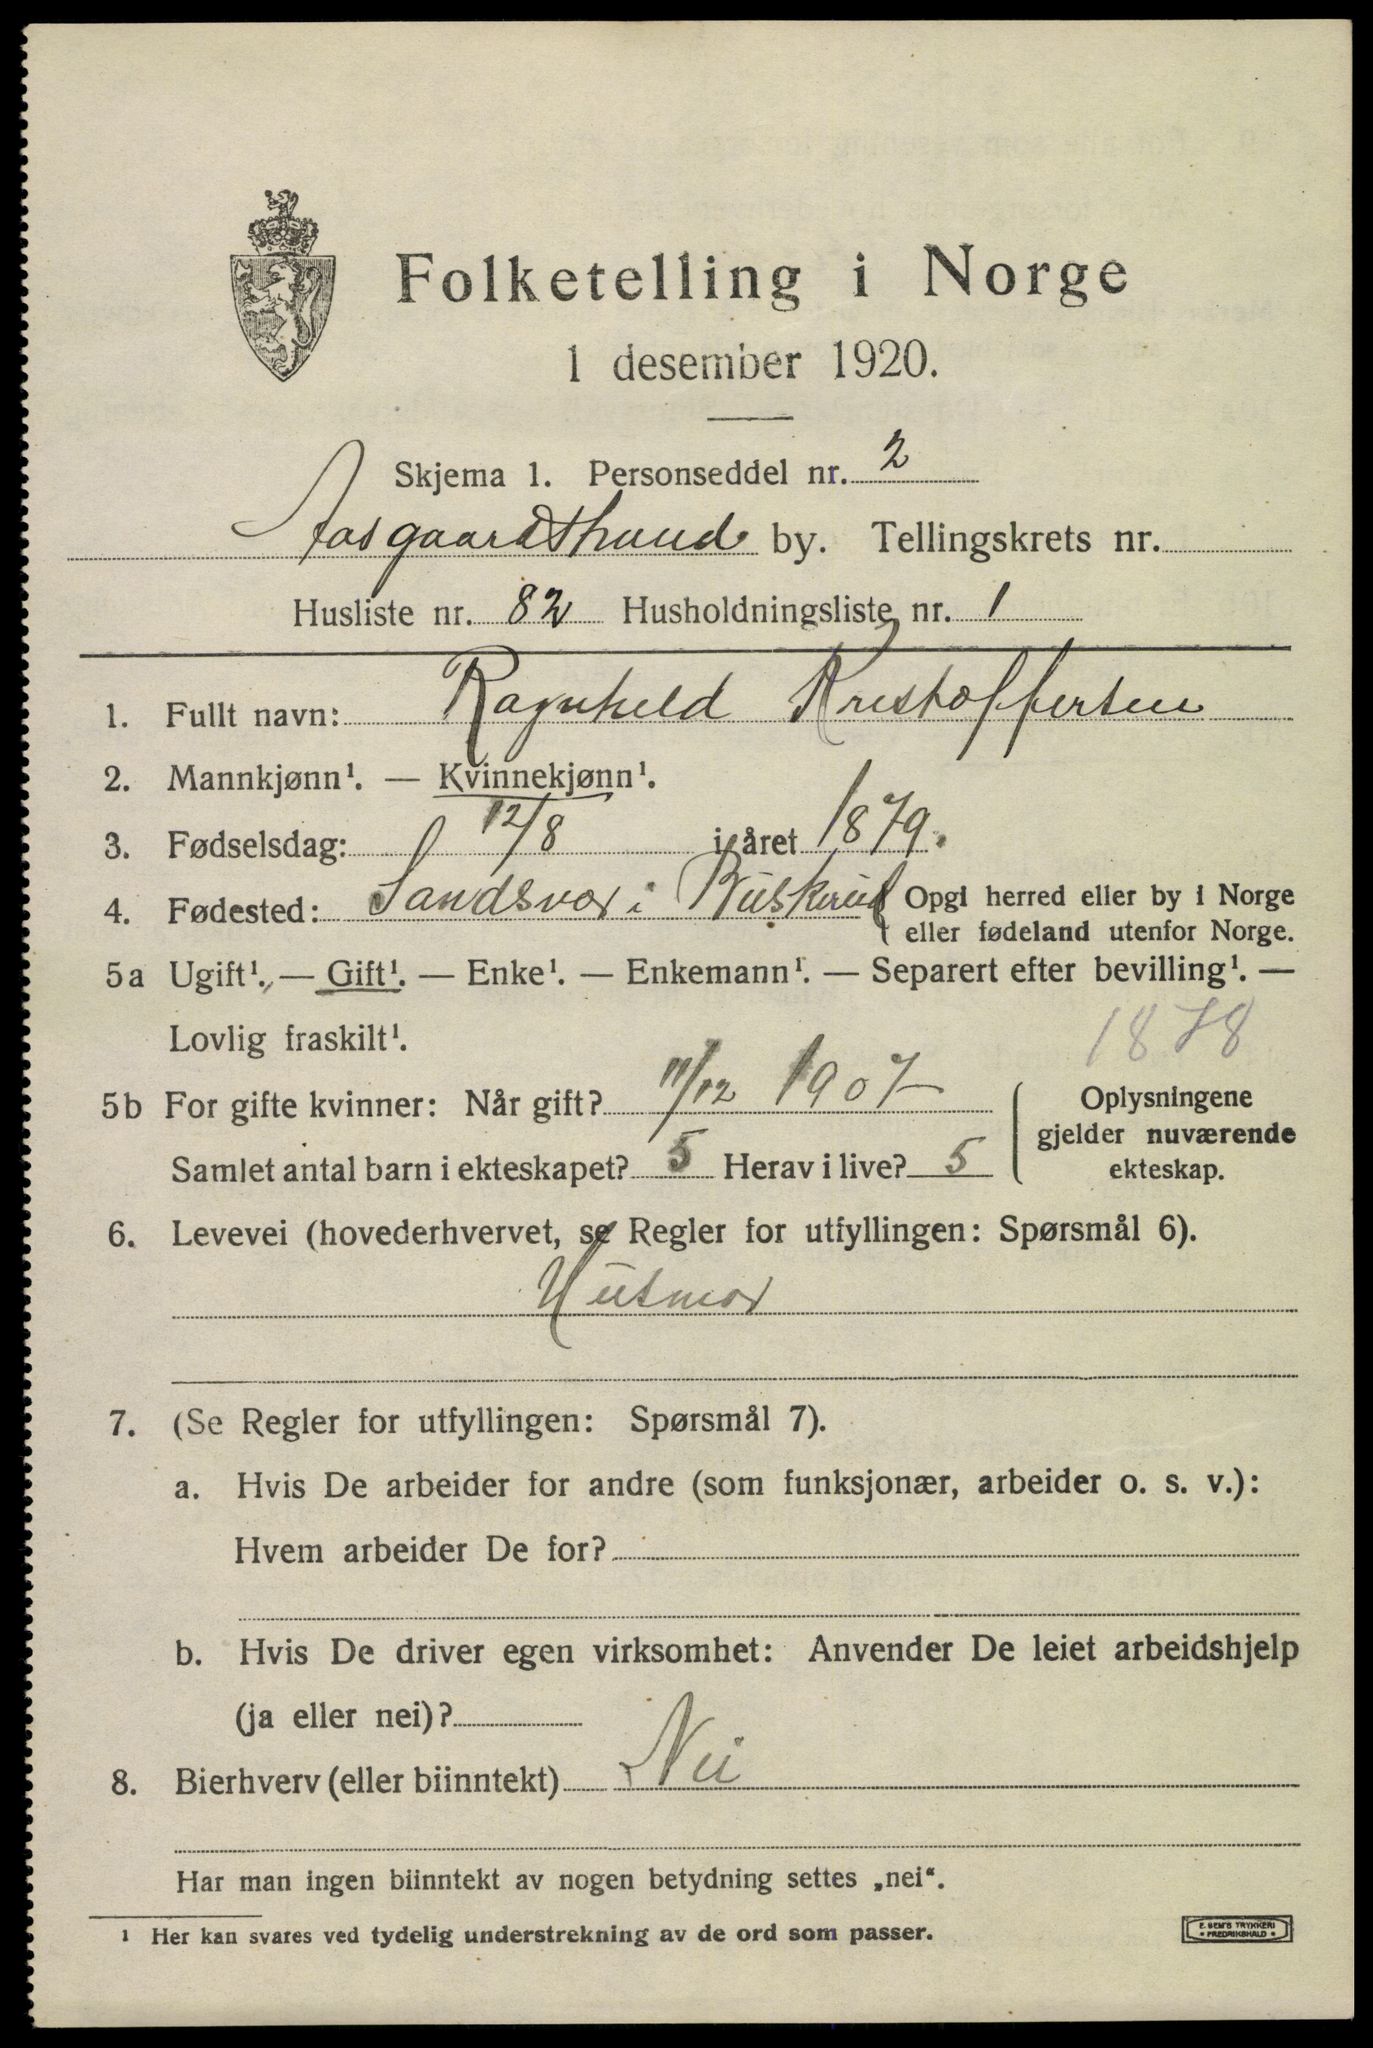 Folketelling i Norge
1 desember 1920.
Skjema 1. Personseddel nr. 2
Aasgaardstrand by. Tellingskrets nr.
Husliste nr. 82 Husholdningsliste nr. 1
1. Fullt navn: Ragnhild Kristoffersen
2. Mannkjønn¹. — Kvinnekjønn¹.
3. Fødselsdag: 12/8 i året 1879.
4. Fødested: Sandsvær i Buskerud Opgi herred eller by i Norge
eller fødeland utenfor Norge.
5a Ugift¹. — Gift¹. — Enke¹. — Enkemann¹. — Separert efter bevilling¹. —
Lovlig fraskilt¹. 1878
5b For gifte kvinner: Når gift? 11/12 1907 Oplysningene
gjelder nuværende
Samlet antal barn i ekteskapet? 5 Herav i live? 5 ekteskap.
6. Levevei (hovederhvervet, se Regler for utfyllingen: Spørsmål 6).
Husmor
7. (Se Regler for utfyllingen: Spørsmål 7).
a. Hvis De arbeider for andre (som funksjonær, arbeider o. s. v.):
Hvem arbeider De for?
b. Hvis De driver egen virksomhet: Anvender De leiet arbeidshjelp
(ja eller nei)?
8. Bierhverv (eller biinntekt) Nei
Har man ingen biinntekt av nogen betydning settes „nei“.
¹ Her kan svares ved tydelig understrekning av de ord som passer.
E. SEM'S TRYKKERI
• FREDRIKSHALD •